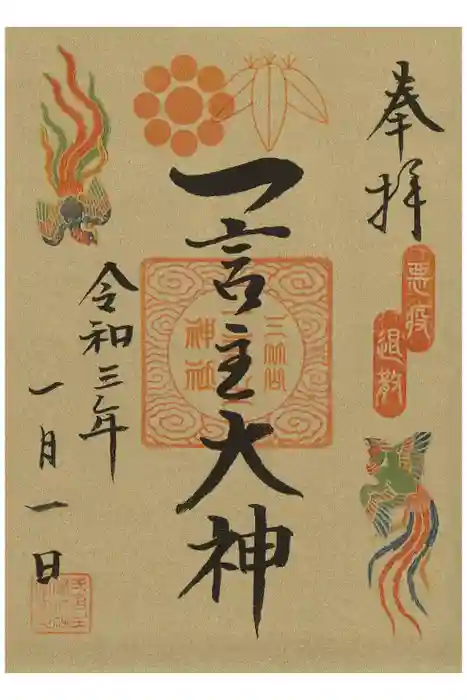 奉拝
悪疫
退散
一言主大神
神社
令和三年
一月一日